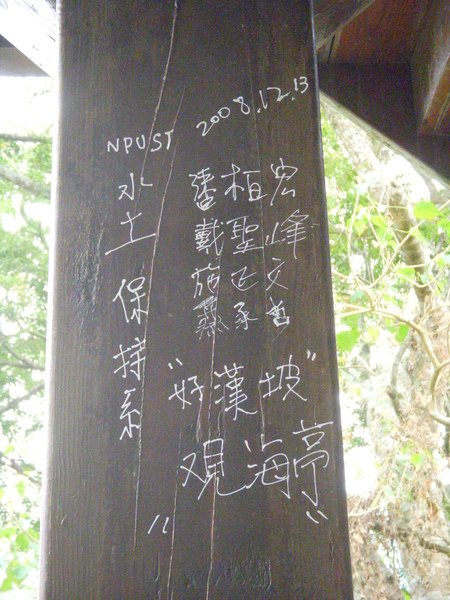 NPUST 2008.12.13
水土保持系
宏
戴聖峰
施正文
承哲
"好漢坡"
"覌海亭"